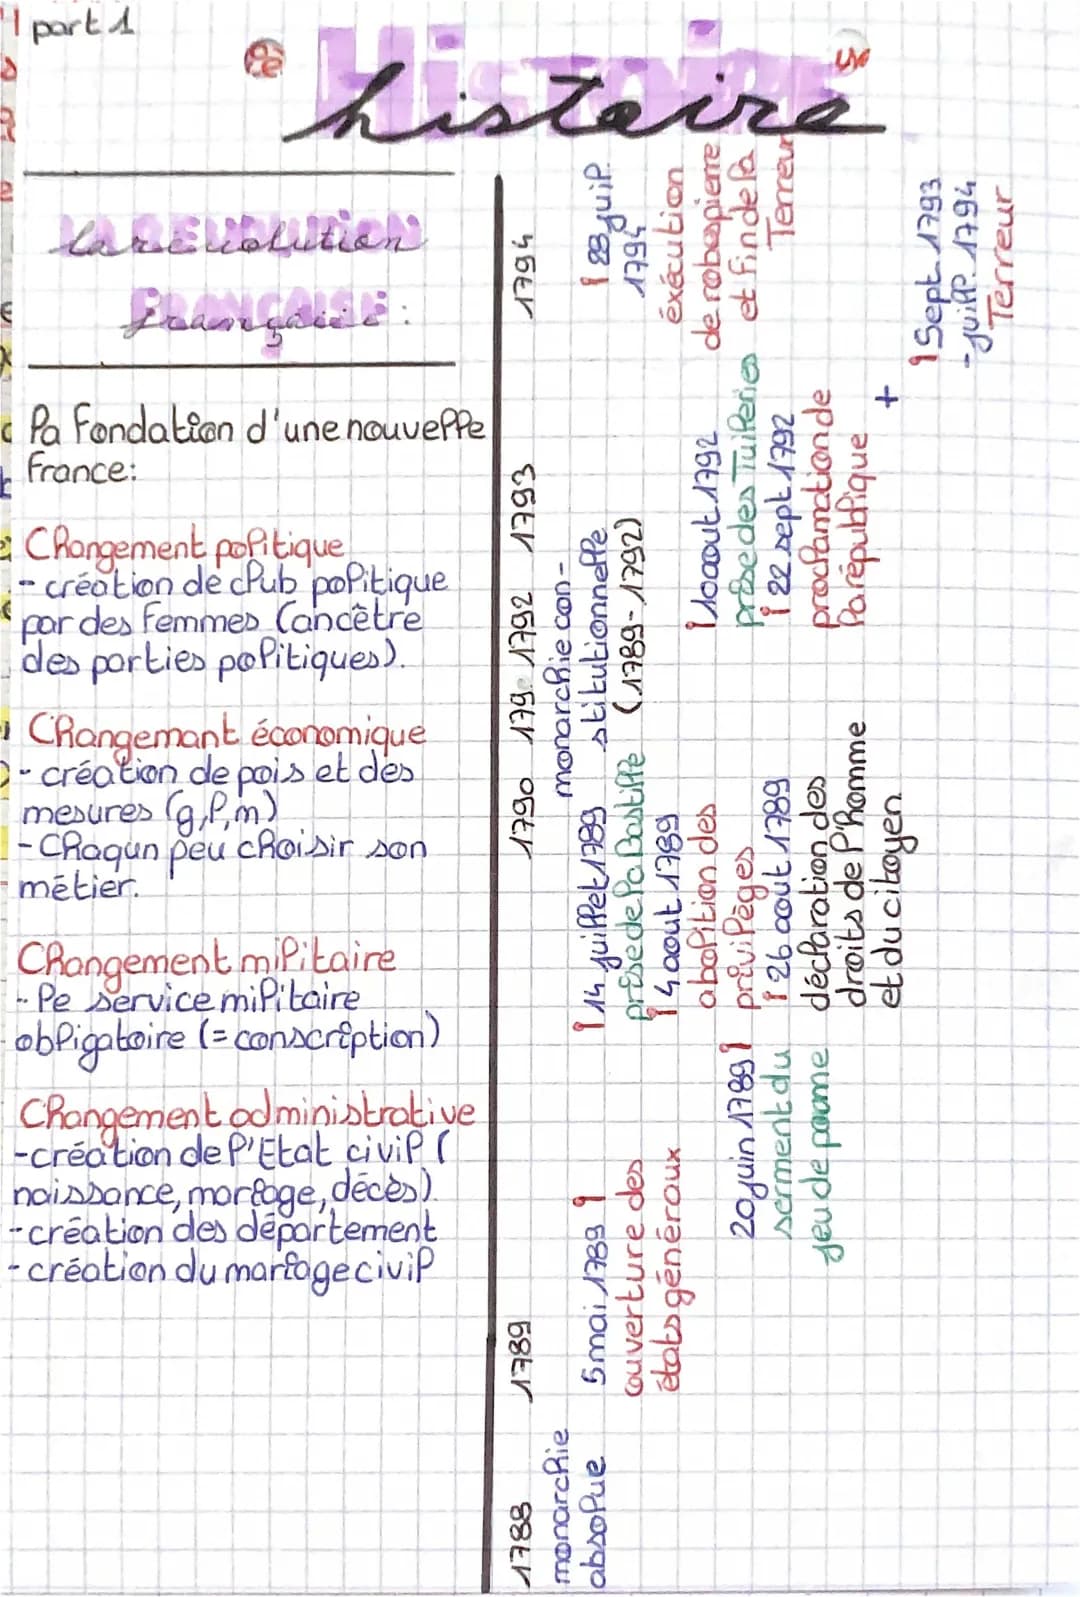 part 1
Histoire
histoire
LA REVOLUTION
la révolution
FRANÇAISE :
française
la fondation d'une nouvelle
france:
Changement politique
- création de club politique
par des femmes (ancêtre
des parties politiques).
Changemant économique
- création de pois et des
mesures (g,l,m)
- Chaqun peu choisir son
métier.
Changement militaire
- le service militaire
obligatoire (= conscription)
Changement administrative
-création de l'Etat civil (
naissance, mariage, décès).
-création des département
-création du mariage civil
1788
monarchie
absolue
1789
5 mai 1789
ouverture des
états généraux
20 juin 1789
serment du
jeu de paume
14 juillet 1789
prise de la Bastille
4 aout 1789
abolition des
privilèges
26 aout 1789
déclaration des
droits de l'homme
et du citoyen
1790
179.
1792
1793
monarchie con-
stitutionnelle
(1789-1792)
10 aout 1792
prise des Tuileries
22 sept 1792
proclamation de
la république
+
1794
28 juil.
1794
éxécution
de robespierre
et fin de la
Terreur
Sept. 1793
-juill. 1794
Terreur